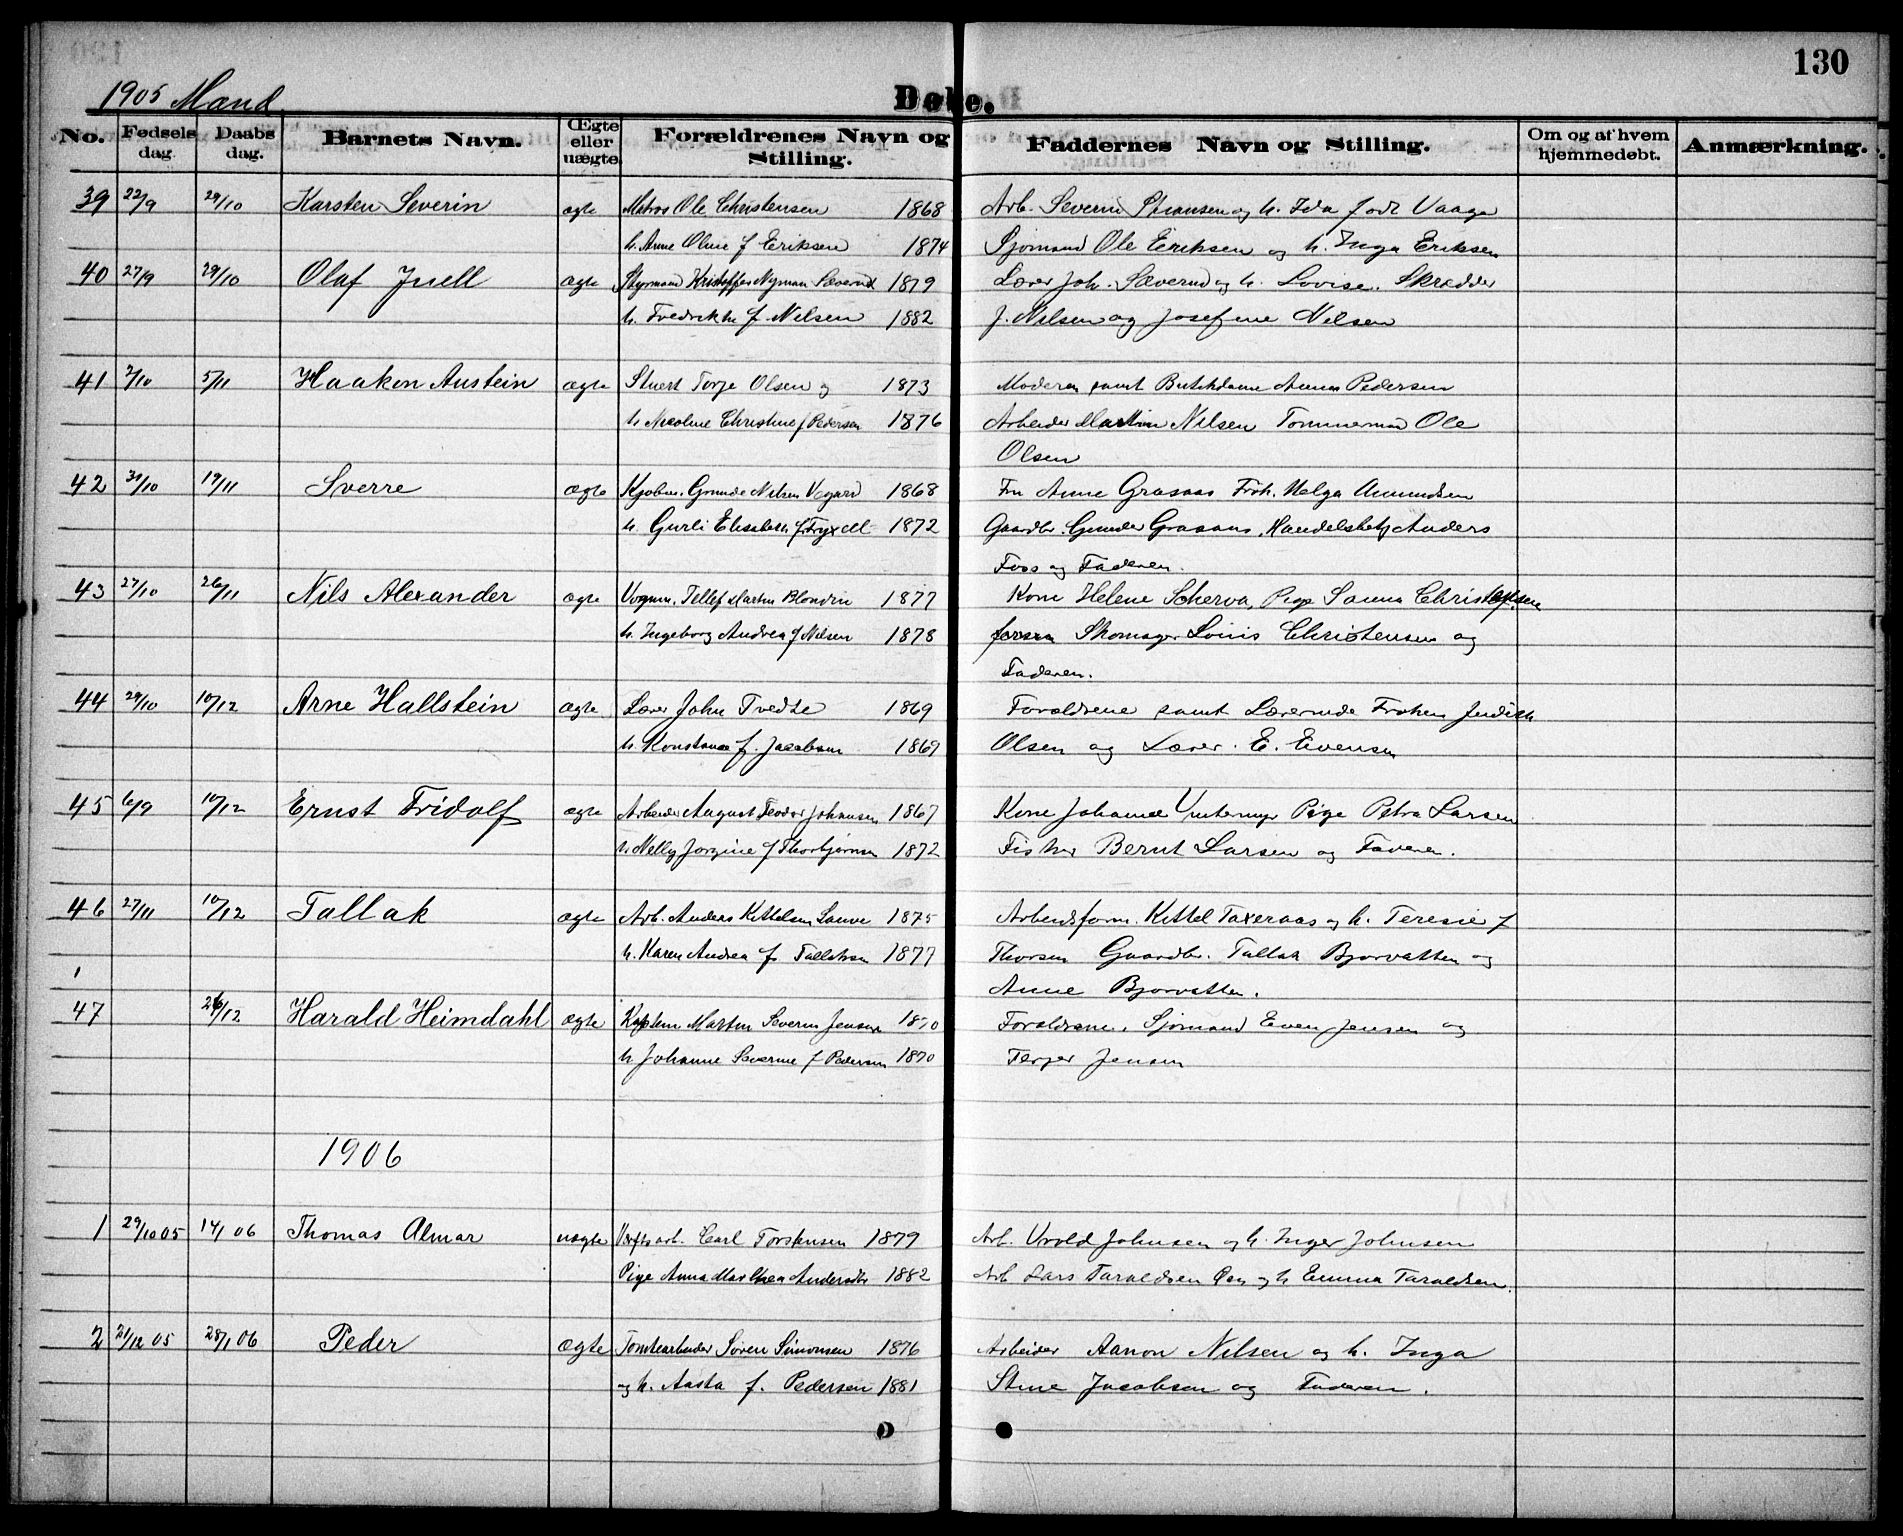 130
1905 Mænd
Døbe.
No. Fødsels dag. Daabs dag. Barnets Navn. Ægte eller uægte. Forældrenes Navn og Stilling. Faddernes Navn og Stilling. Om og af hvem hjemmedøbt. Anmærkning.
39 22/9 29/10 Karsten Severin ægte Matros Ole Christensen 1868 Arb. Severin og h. Ida født Vaage
h. Anne Oline f Eriksen 1874 Sjømand Ole Eriksen og h. Inga Eriksen
40 27/9 29/10 Olaf Juell ægte Styrmand Kristoffer Nyman Sæverud 1879 Lærer Joh. Sæverud og h. Lovise. Skrædder
h. Fredrikke f Nilsen 1882 J. Nilsen og Josefine Nilsen
41 2/10 5/11 Haakon Austein ægte Stuert Torje Olsen og 1873 Moderen samt Butikdame Anna Pedersen
h. Nicoline Christine f Pedersen 1876 Arbeider Martin Nilsen Tømmermd Ole
Olsen
42 31/10 19/11 Sverre ægte Kjøbm. Gunde Nilsen Vegard 1868 Fru Anne Grasaas Frøk. Helga Amundsen
h. Gurli Elisabeth f. Fryxell 1872 Gaardbr. Gunder Grasaas, Handelsbetj Anders
Foss og Faderen.
43 27/10 26/11 Nils Alexander ægte Vognm. Tellef Martin Blondin 1877 Kone Helene Scherva, Pige Sanna Christoffersen
h. Ingeborg Andrea f Nilsen 1878 Skomager Louis Christensen og
Faderen.
44 29/10 10/12 Arne Hallstein ægte Lærer John Tvedte 1869 Forældrene samt Lærerinde Frøken Judith
h. Konstance f. Jacobsen 1869 Olsen og Lærer. E. Evensen
45 6/9 10/12 Ernst Fridolf ægte Arbeider August Teodor Johansen 1867 Kone Johanne Pige Petra Larsen
h. Nelly Jorgine f Thorbjørnsen 1872 Fisker Bernt Larsen og Faderen.
46 27/11 10/12 Tallak ægte Arb. Anders Kittelsen Sauve 1875 Arbeidsform. Kittel Taxeraas og h. Teresie f
h. Karen Andrea f. Tallaksen 1877 Thorsen Gaardbr. Tallak Bjorvatten og
Anne Bjorvatten.
47 26/12 Harald Heimdahl ægte Kaptein Martin Severin Jensen 1870 Forældrene, Sjømand Even Jensen og
h. Johanne Severine f Pedersen 1870 Terjer Jensen
1906
1 29/10 05 14/1 06 Thomas Almar uægte Verftsarb. Carl Torstensen 1879 Arb. Johnsen og h. Inger Johnsen
Pige Anna Mathea Andersdtr 1882 Arb Lars Taraldsen og h Emma Taraldsen.
2 21/12 05 28/1 06 Peder ægte Tomtearbeider Søren Simonsen 1876 Arbeider Aanon Nilsen og h. Inga
og h. Aasta f. Pedersen 1881 Stine Jacobsen og Faderen.